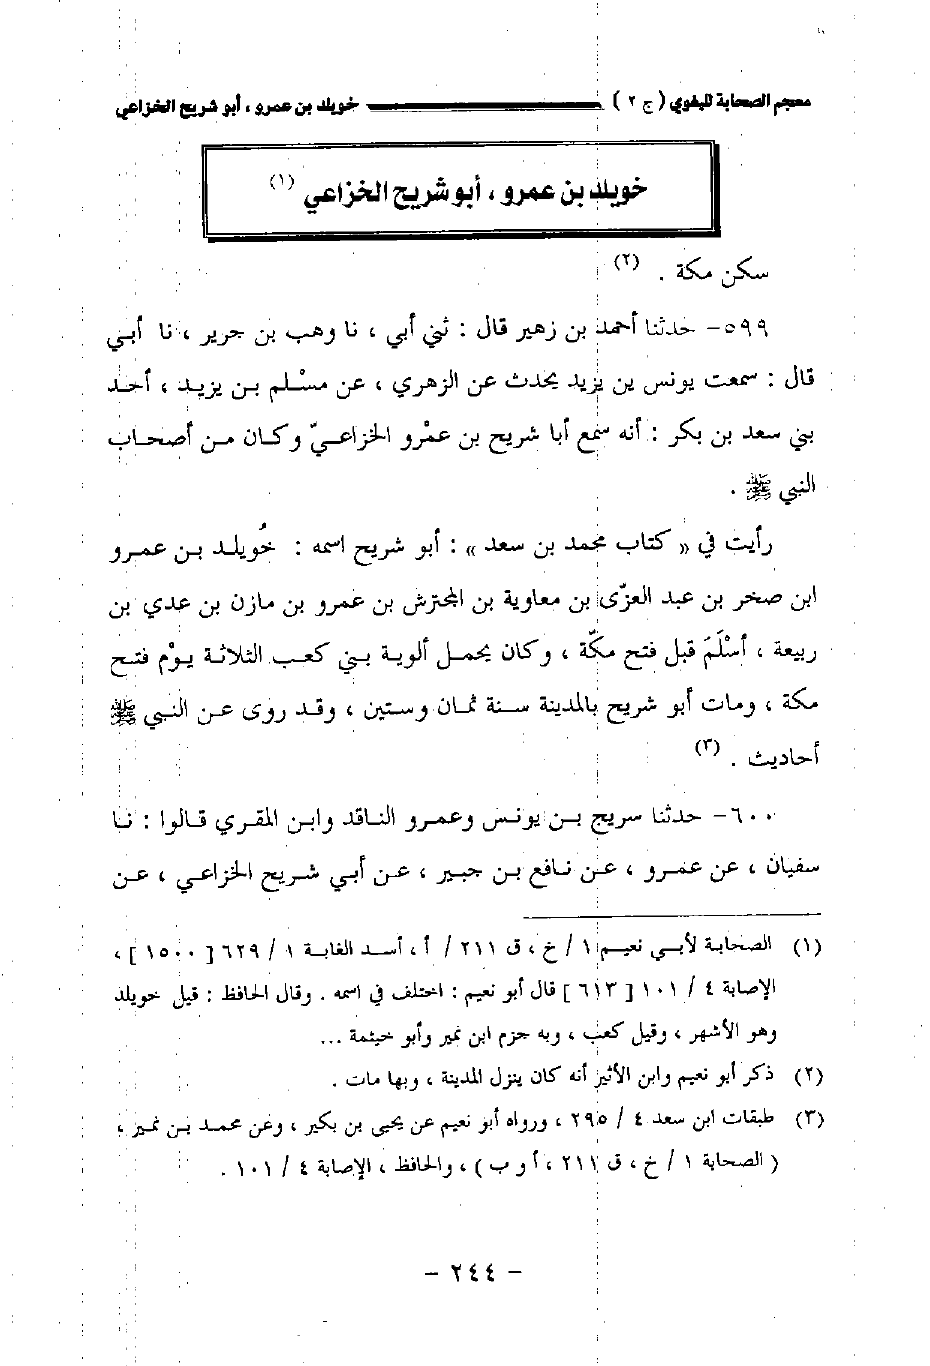 معجم الصحابة للبغوي ( ج ٢ ) خويلد بن عمرو ، أبو شريح الخزاعي
خويلد بن عمرو ، أبو شريح الخزاعي (١)
سكن مكة . (٢)
٥٩٩- حدثنا أحمد بن زهير قال : ثني أبي ، نا وهب بن جرير ، نا أبي
قال : سمعت يونس بن يزيد يحدث عن الزهري ، عن مسْلم بن يزيد ، أحد
بني سعد بن بكر : أنه سمع أبا شريح بن عمْرو الخزاعيّ وكان من أصحاب
النبي ﷺ .
رأيت في « كتاب محمد بن سعد » : أبو شريح اسمه : خُويلد بن عمرو
ابن صخر بن عبد العزّى بن معاوية بن المحترش بن عمرو بن مازن بن عدي بن
ربيعة ، أسْلَمَ قبل فتح مكّة ، وكان يحمل ألوية بني كعب الثلاثة يوْم فتح
مكة ، ومات أبو شريح بالمدينة سنة ثمان وستين ، وقد روى عن النبي ﷺ
أحاديث . (٣)
٦٠٠- حدثنا سريج بن يونس وعمرو الناقد وابن المقري قالوا : نا
سفيان ، عن عمرو ، عن نافع بن جبير ، عن أبي شريح الخزاعي ، عن
(١) الصحابة لأبي نعيم ١ / خ ، ق ٢١١ / أ ، أسد الغابة ١ / ٦٢٩ [ ١٥٠٠ ] ،
الإصابة ٤ / ١٠١ [ ٦١٣ ] قال أبو نعيم : اختلف في اسمه . وقال الحافظ : قيل خويلد
وهو الأشهر ، وقيل كعب ، وبه جزم ابن نمير وأبو خيثمة ...
(٢) ذكر أبو نعيم وابن الأثير أنه كان ينزل المدينة ، وبها مات .
(٣) طبقات ابن سعد ٤ / ٢٩٥ ، ورواه أبو نعيم عن يحيى بن بكير ، وعن محمد بن نمير ،
( الصحابة ١ / خ ، ق ٢١١ ، أ و ب ) ، والحافظ ، الإصابة ٤ / ١٠١ .
- ٢٤٤ -